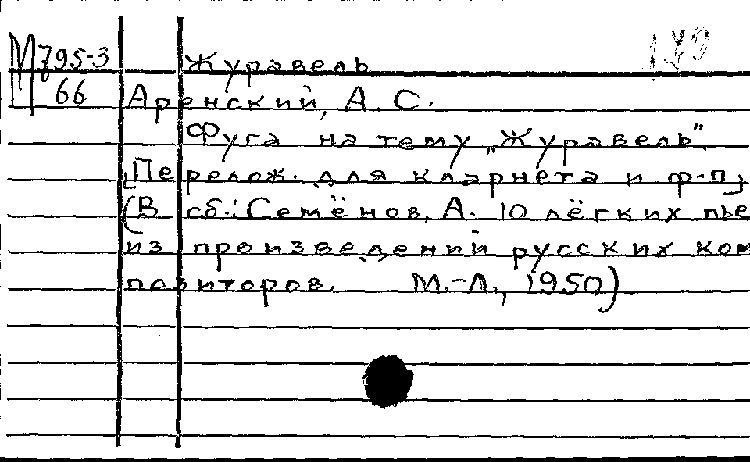 М795-3 Журавель
66 Аренский, А. С.
Фуга на тему „Журавель".
[Перелож. для кларнета и ф-п]
(В сб.: Семёнов, А. 10 лёгких пье
из произведений русских ком
позиторов. М.-Л., 1950)